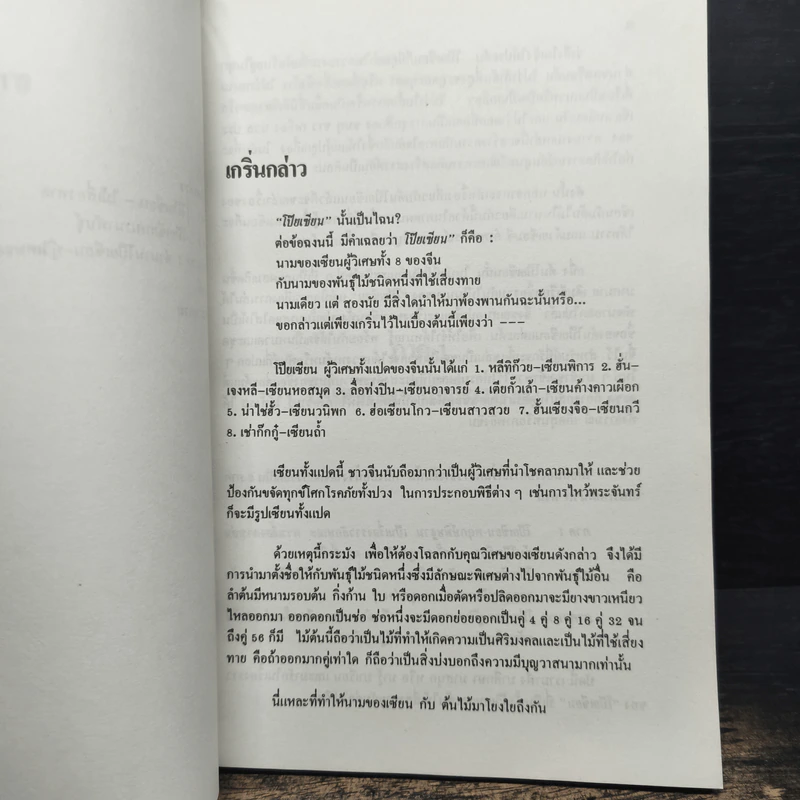 เกริ่นกล่าว
"โป๊ยเซียน" นั้นเป็นไฉน?
ต่อข้อฉงนนี้ มีคำเฉลยว่า โป๊ยเซียน" ก็คือ :
นามของเซียนผู้วิเศษทั้ง 8 ของจีน
กับนามของพันธุ์ไม้ชนิดหนึ่งที่ใช้เสี่ยงทาย
นามเดียว แต่ สองนัย มีสิ่งใดนำให้มาพ้องพานกันฉะนั้นหรือ...
ขอกล่าวแต่เพียงเกริ่นไว้ในเบื้องต้นนี้เพียงว่า ---
โป๊ยเซียน ผู้วิเศษทั้งแปดของจีนนั้นได้แก่ 1. หลีทิก๊วย-เซียนพิการ 2. ฮั่น-
เจงหลี-เซียนหอสมุด 3. ลื่อท่งปิน-เซียนอาจารย์ 4. เตียกั๊วเล้า-เซียนค้างคาวเผือก
5. น่าไช่ฮั้ว-เซียนวนิพก 6. ฮ่อเซียนโกว-เซียนสาวสวย 7. ฮั้นเซียงจือ-เซียนกวี
8. เช่าก๊กกู๋-เซียนถ้ำ
เซียนทั้งแปดนี้ ชาวจีนนับถือมากว่าเป็นผู้วิเศษที่นำโชคลาภมาให้ และช่วย
ป้องกันขจัดทุกข์โศกโรคภัยทั้งปวง ในการประกอบพิธีต่าง ๆ เช่นการไหว้พระจันทร์
ก็จะมีรูปเซียนทั้งแปด
ด้วยเหตุนี้กระมัง เพื่อให้ต้องโฉลกกับคุณวิเศษของเซียนดังกล่าว จึงได้มี
การนำมาตั้งชื่อให้กับพันธุ์ไม้ชนิดหนึ่งซึ่งมีลักษณะพิเศษต่างไปจากพันธุ์ไม้อื่น คือ
ลำต้นมีหนามรอบต้น กิ่งก้าน ใบ หรือดอกเมื่อตัดหรือปลิดออกมาจะมียางขาวเหนียว
ไหลออกมา ออกดอกเป็นช่อ ช่อหนึ่งจะมีดอกย่อยออกเป็นคู่ 4 คู่ 8 คู่ 16 คู่ 32 จน
ถึงคู่ 56 ก็มี ไม้ต้นนี้ถือว่าเป็นไม้ที่ทำให้เกิดความเป็นศิริมงคลและเป็นไม้ที่ใช้เสี่ยง
ทาย คือถ้าออกมากคู่เท่าใด ก็ถือว่าเป็นสิ่งบ่งบอกถึงความมีบุญวาสนามากเท่านั้น
นี่แหละที่ทำให้นามของเซียน กับ ต้นไม้มาโยงใยถึงกัน